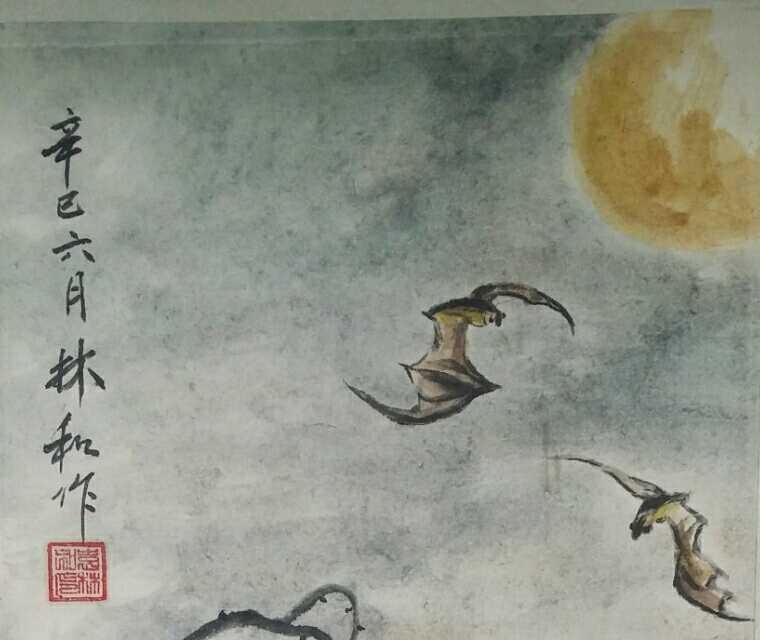 辛巳六月林和作